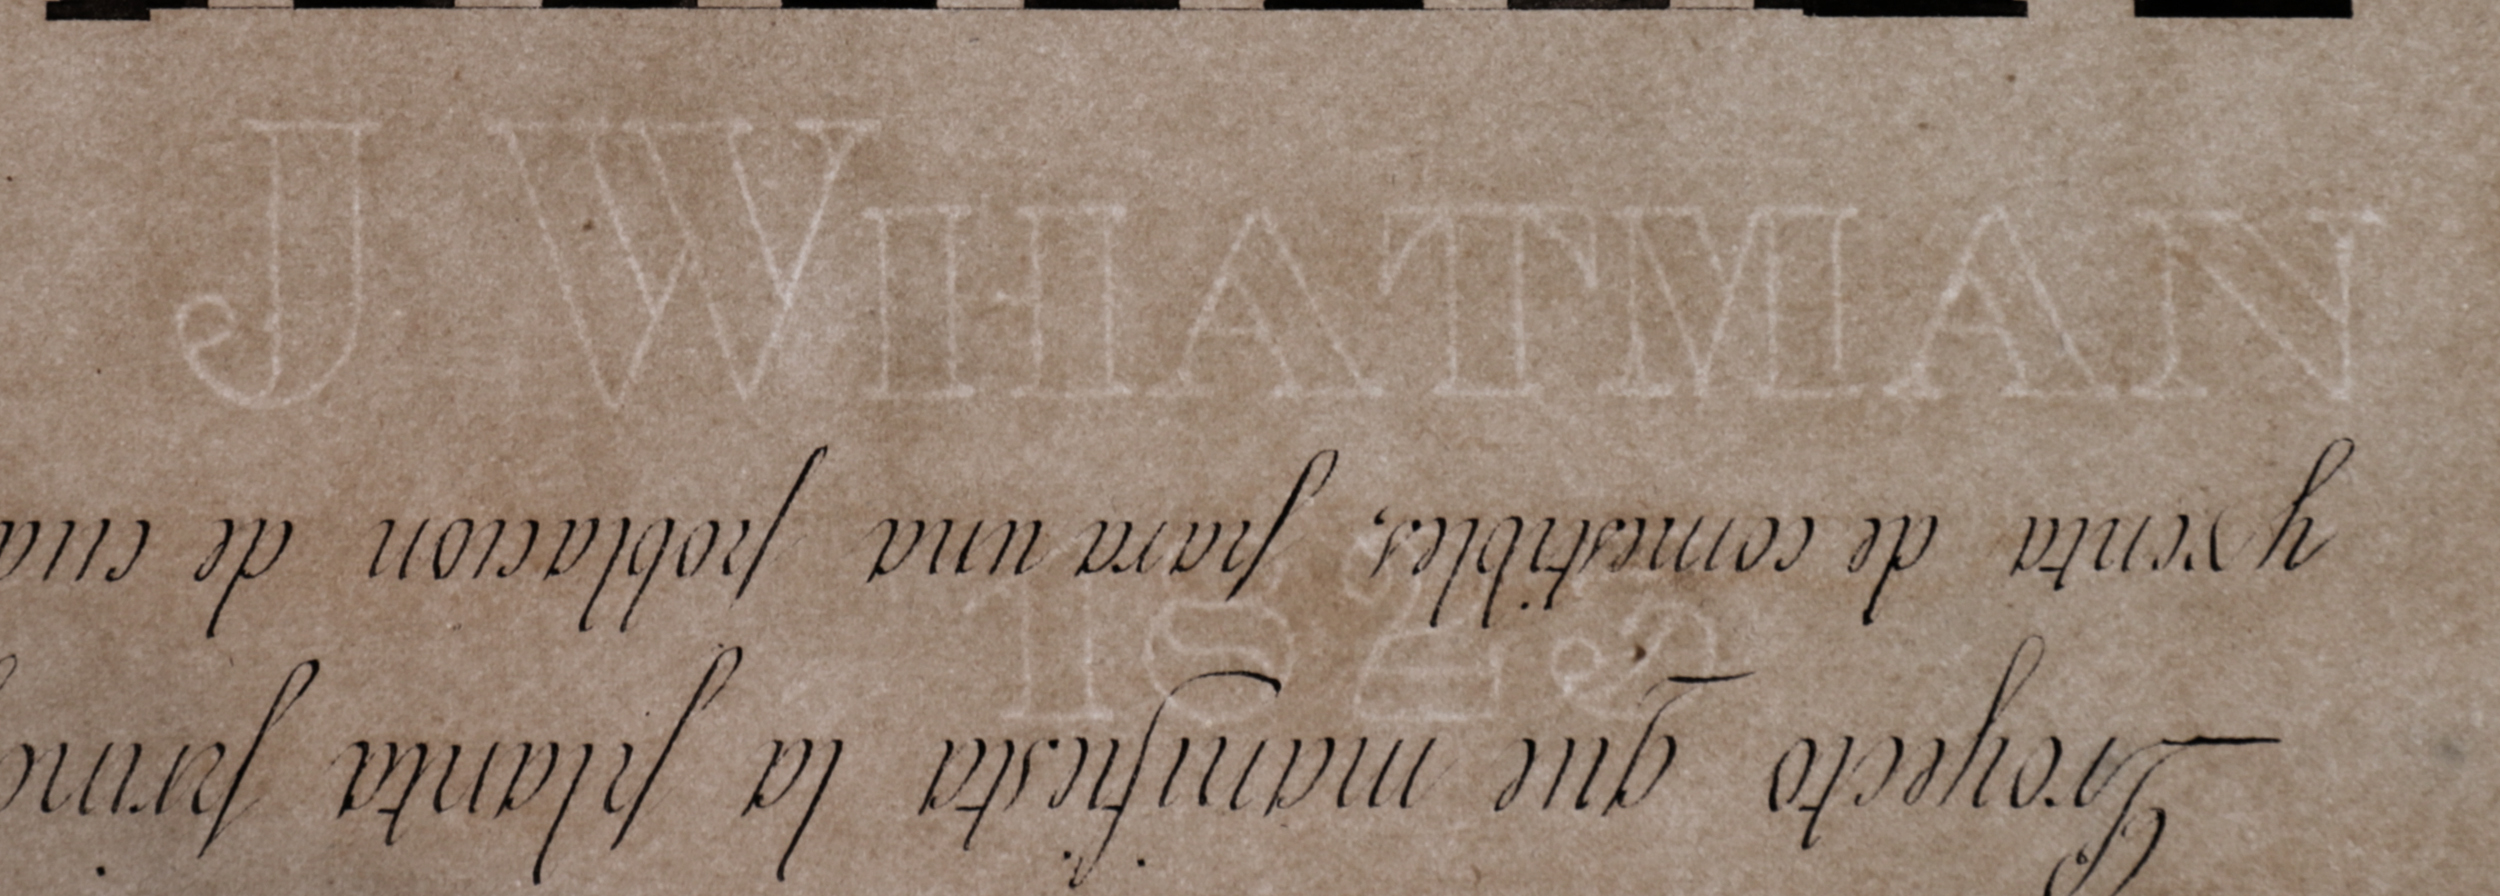 J WHATMAN
1825
Proyecto que manifiesta la planta princ
y venta de comestibles, para una poblacion de cua